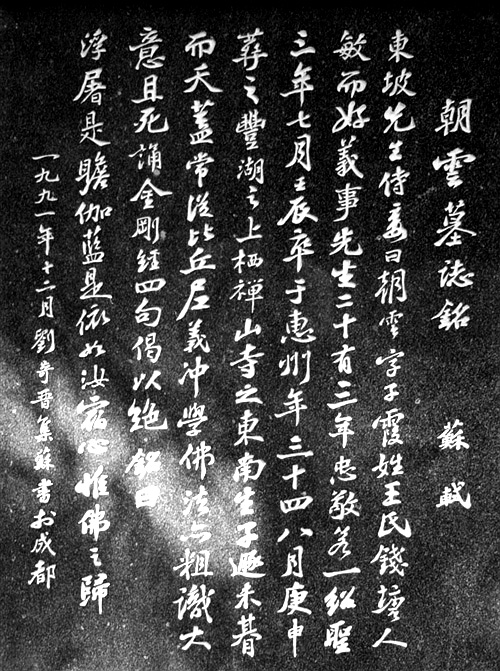 朝雲墓誌銘 蘇軾
東坡先生侍妾曰朝雲字子霞姓王氏錢塘人
敏而好義事先生二十有三年忠敬若一紹聖
三年七月壬辰卒于惠州年三十四八月庚申
葬之豐湖之上栖禅山寺之東南生子遯未朞
而夭蓋常從比丘尼義沖學佛法亦粗識大
意且死誦金剛經四句偈以絶銘曰
浮屠是瞻伽藍是依如汝宿心惟佛之歸
一九九一年十二月劉奇晋集蘇書於成都